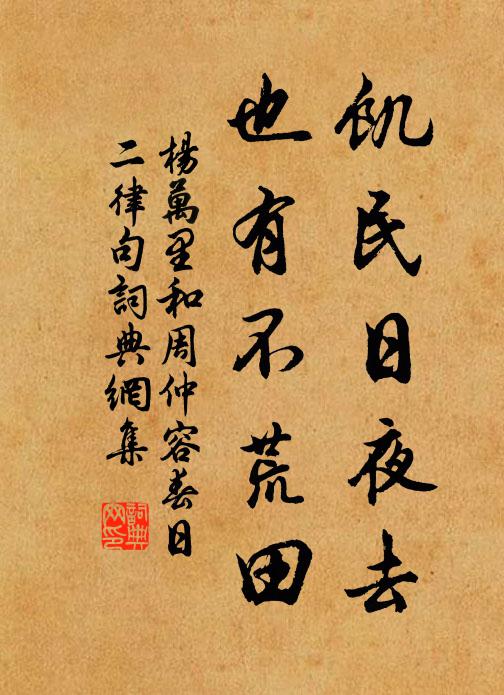 飢民日夜去
也有不荒田
楊萬里和周仲容春日
二律句詞典網集
詞典
网印